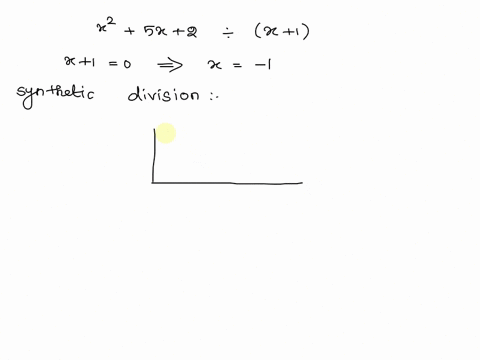 x² + 5x + 2 ÷ (x + 1)
x + 1 = 0 ⇒ x = -1
synthetic division :-